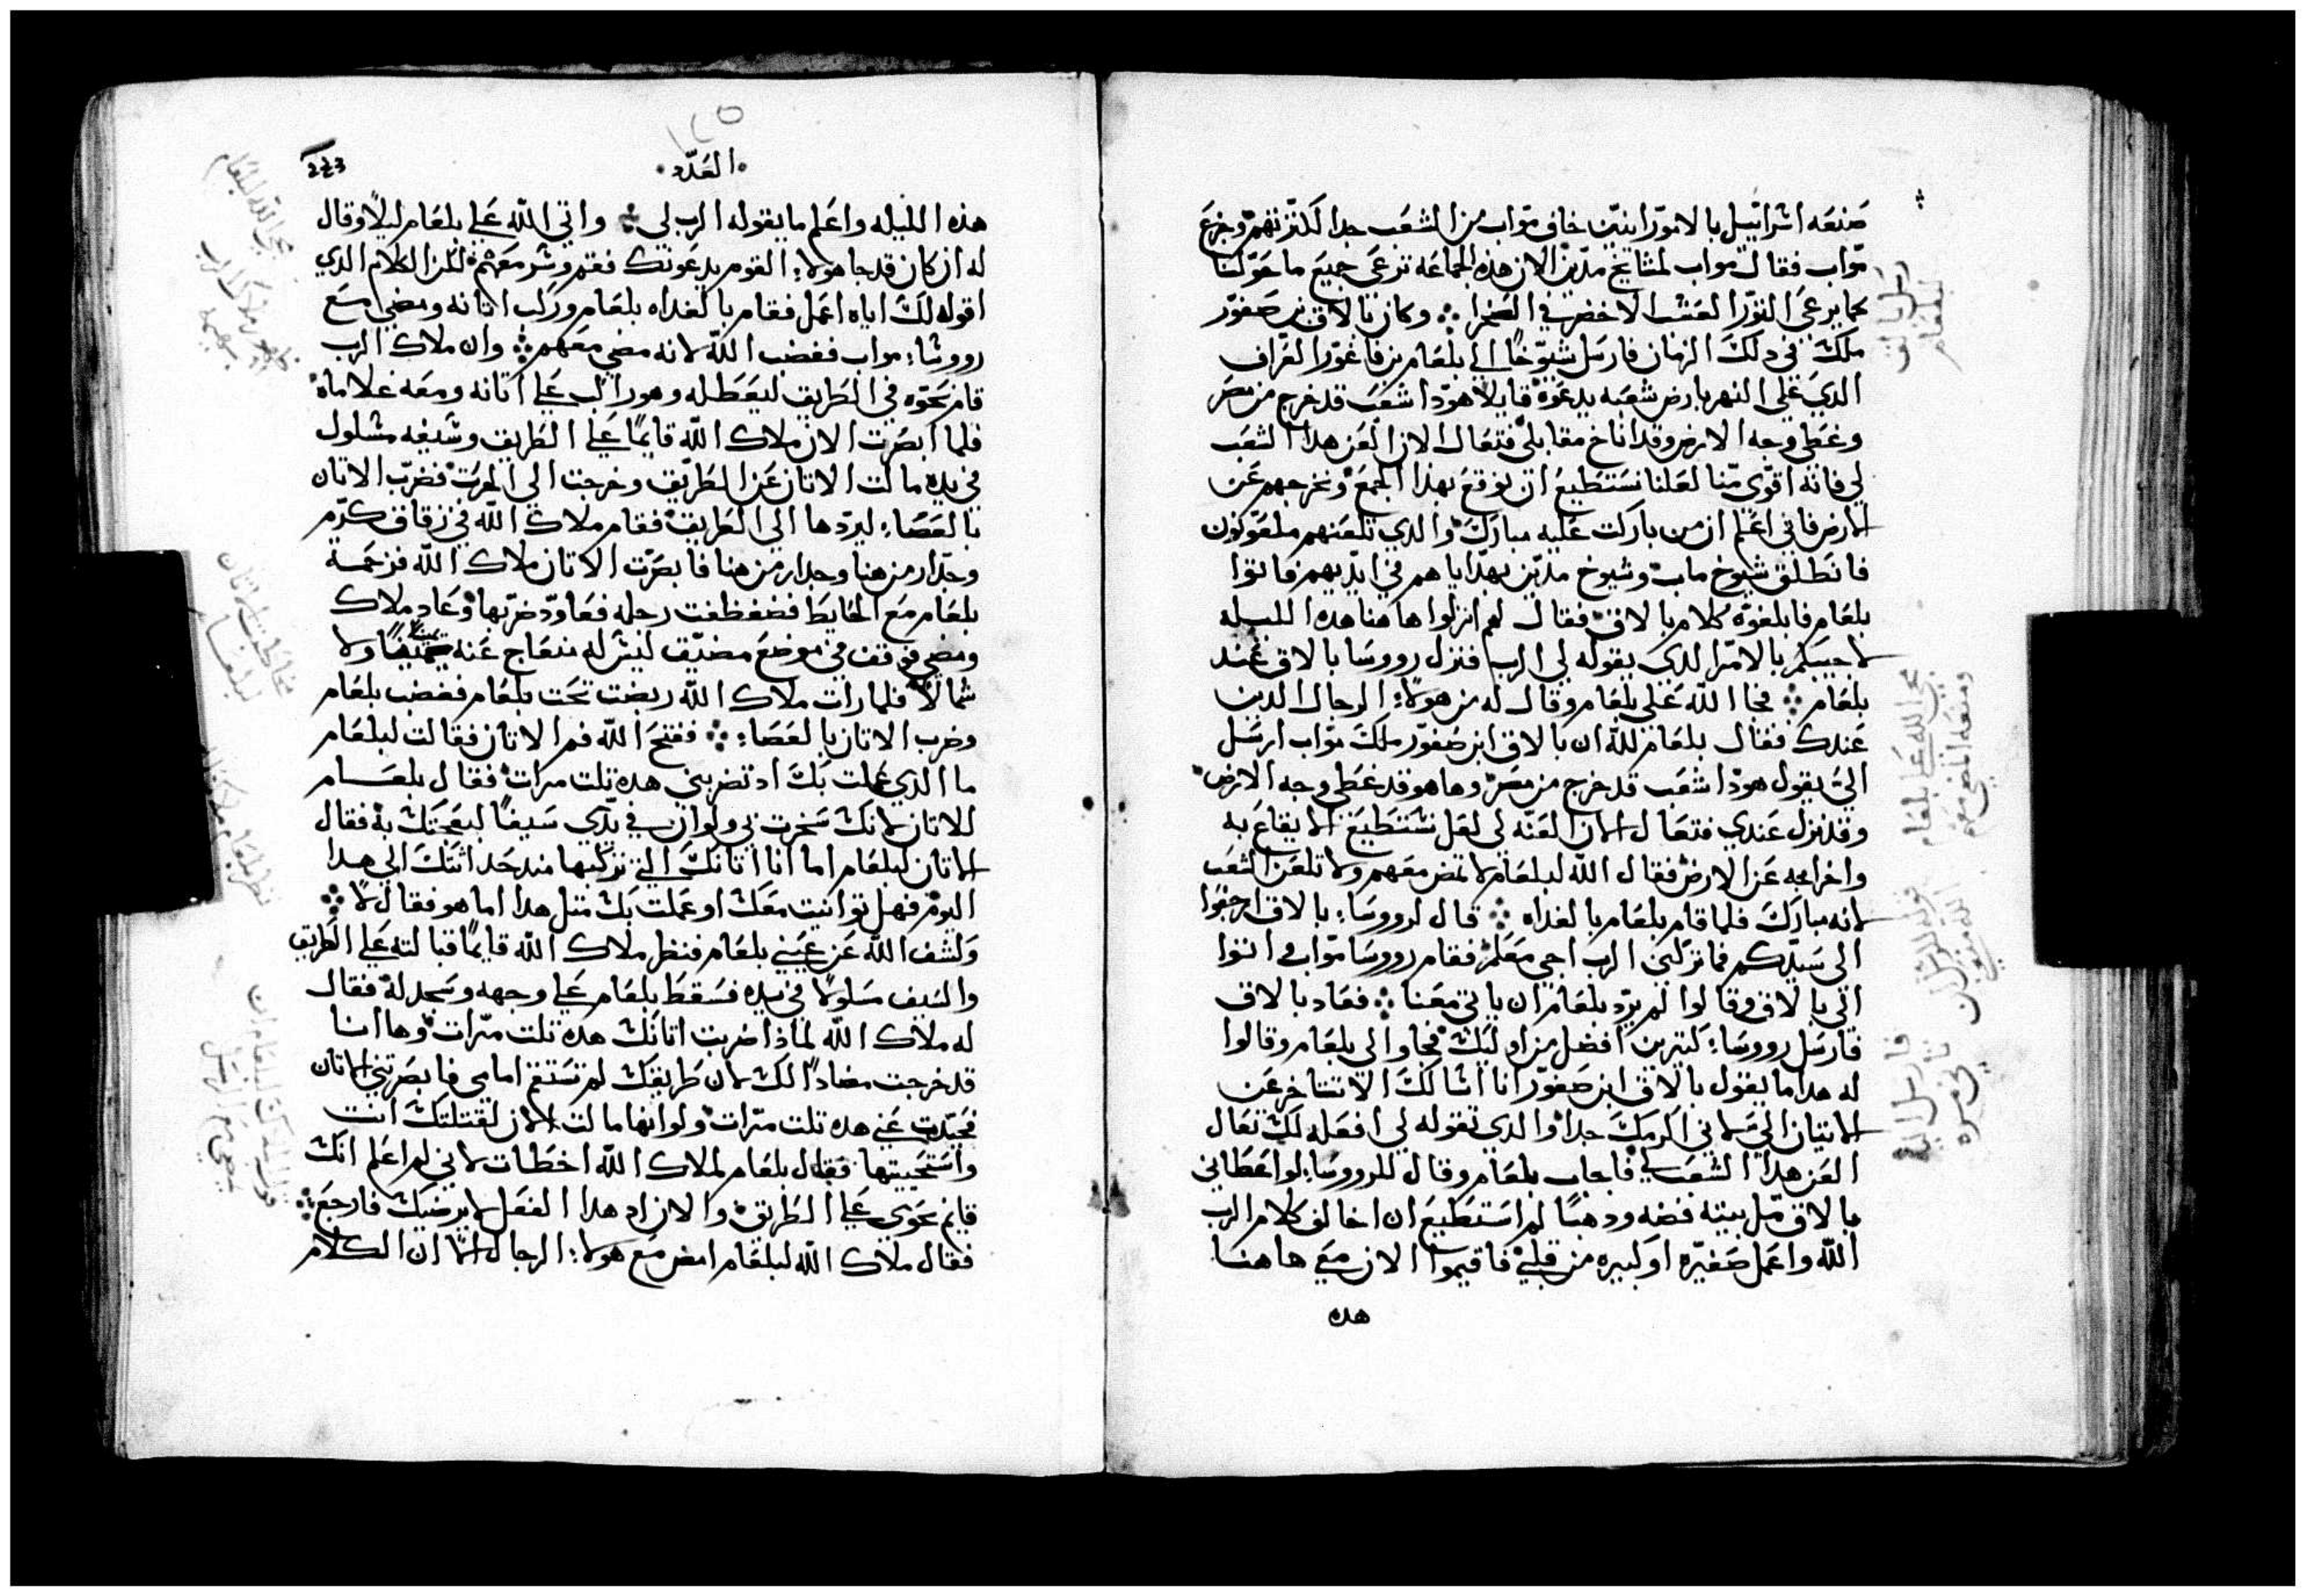 صنعه اسراييل بالاموّرانيّن خاف موّاب من الشعب جدا لكثرتهم وجزع
موّاب فقال مواب لمشايخ مدّين الان هذه الجماعه ترعى جميع ما حوّلنا
كما يرعى التوّر العشب الاخضر في الصحرا ⁘ وكان بالاق بن صفوّر
ملك في دلك الزمان فارسل شيوّخًا الى بلعام بن فاغوّر العرّاف
الدي على النهر بارض شعبه يدعوّه قايلا هوّدا شعب قد خرج من مصر
وغطى وجه الارض وقد اناخ مقابلي فتعال الان العن هدا الشعب
لي فانه اقوّى منّا لعلنا نستطيع ان نوقع بهدا الجمع ونخرجهم عن
الارض فاني اعلم ان من باركت عليه مبارك والدي تلعنهم ملعوّنون
فانطلق شيوخ ماب وشيوخ مديّن بهدّاياهم في ايدّيهم فاتوا
بلعام فابلغوّه كلام بالاق فقال لهم انزلوا هاهنا هده الليله
لاجيبكم بالامّر الدي يقوله لي الرب فنزل رووسا بالاق عند
بلعام ⁘ فجا الله على بلعام وقال له من هولاء الرجال الدين
عندك فقال بلعام لله ان بالاق ابن صفوّر ملك موّاب ارسل
اليّ يقول هوّدا شعب قد خرج من مصر وها هو قد غطى وجه الارض
وقد نزل عندي فتعال الان العنّه لي لعل نستطيع الايقاع به
واخراجه عن الارض فقال الله لبلعام لا تمض معهم ولا تلعن الشعب
لانه مبارك فلما قام بلعام بالغداه ⁘ قال لرووساء بالاق ارجعوا
الى سيّدكم فما تركني الرب اجي معكم فقام رووسا موّاب واتوا
الى بالاق وقالوا لم يرّد بلعام ان ياتي معنا ⁘ فعاد بالاق
فارسل رووساء كتيرين افضل من اوليك فجاوا الى بلعام وقالوا
له هدا ما يقول بالاق ابن صفوّر انا اسالك الا تتاخر عن
الاتيان اليّ لاني اكرمك جدا والدي تقوله لي افعله لك تعال
العن هدا الشعب لي فاجاب بلعام وقال للرووساء لو اعطاني
بالاق ملّ بيته فضه ودهبًا لم استطيع ان اخالف كلام الرب
الله واعمل صغيّره او كبيره من قلبي فاقيموا الان معي هاهنا
هده
العدّد
243
هذه الليله واعلم ما يقوله الرب لي ⁘ واتي الله على بلعام ليلًا وقال
له ان كان قد جا هولاء القوم يدعونك فقم وسر معهم لكن الكلام الدي
اقوله لك اياه اعمل فقام بالغداه بلعام وركب اتانه ومضى مع
رووساء مواب فغضب الله لانه مضى معهم ⁘ وان ملاك الرب
قام نحوّه في الطريق ليعطله وهو راكب على اتانه ومعه غلاماه
فلما ابصرت الاتان ملاك الله قايمًا على الطريق وسيفه مسلول
في يده مالت الاتان عن الطرّيق وخرجت الى الحرت فضرّب الاتان
بالعصاء ليردّها الى الطريق فقام ملاك الله في زقاق كرّم
وجدّار من هنا وجدار من هنا فابصرّت الاتان ملاك الله فزحمه
بلعام مع الحايط فضغظغت رجله فعاودّ ضرّبها وعاد ملاك
ومضى فوقف في موضع مضيّق ليس له منعاج عنه يمينًا ولا
شمالًا فلما رات ملاك الله ربضت تحت بلعام فغضب بلعام
وضرب الاتان بالعصاء ⁘ ففتح الله فم الاتان فقالت لبلعام
ما الدي عملت بك اد تضربني هده تلت مرات فقال بلعام
للاتان لانك سخرت بي ولو ان في يدّي سيفًا لبعجتك به فقال
الاتان لبلعام اما انا اتانك التي تركبها مند حداثتك الى هدا
اليوم فهل توانيت معك او عملت بك متل هدا اما هو فقال لا ⁘
وكشف الله عن عيني بلعام فنظر ملاك الله قايمًا قبالته على الطريق
والسيف مسلولًا في يده فسقط بلعام على وجهه وسجد له فقال
له ملاك الله لماذا ضربت اتانك هده تلت مرّات وها انا
قد خرجت مضادًا لك لان طريقك لم تستقم امامي فابصرتني الاتان
فحيّدت عني هده تلت مرّات ولو انها مالت الان لقتلتك انت
واستحييتها فقال بلعام لملاك الله اخطات لاني لم اعلم انك
قايم نحوي على الطريق والان اد هدا الفعل لا يرضيك فارجع ⁘
فقال ملاك الله لبلعام امض مع هولاء الرجال الا ان الكلام